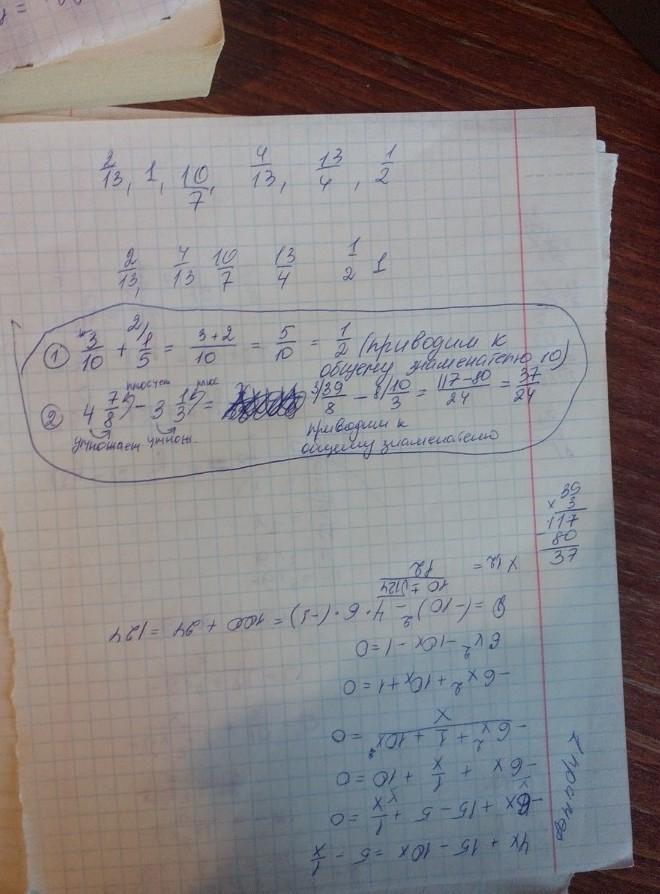 2/13, 1, 10/7, 4/13, 13/4, 1/2
2/13, 4/13 10/7 13/4 1/2 1
① 3/10 + 2/ 1/5 = 3+2/10 = 5/10 = 1/2 (приводим к
общему знаменателю 10)
② 4 7/8 - 3 1/3 = 3/ 39/8 - 8/ 10/3 = 117-80/24 = 37/24
приводим к
общему знаменателю
умножаем
39
× 3
117
80
37
4x + 15 - 10x = 5 - 1/x
-6x + 15 - 5 + 1/x = 0
-6x + 1/x + 10 = 0
-6x² + 1 + 10x / x = 0
-6x² + 10x + 1 = 0
6x² - 10x - 1 = 0
D = (-10)² - 4·6·(-1) = 100 + 24 = 124
x₁₂ = 10 ± √124 / 12